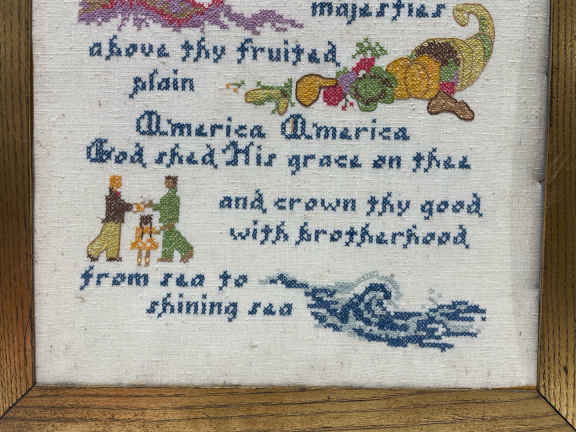 majesties
above thy fruited
plain
America America
God shed His grace on thee
and crown thy good
with brotherhood
from sea to
shining sea